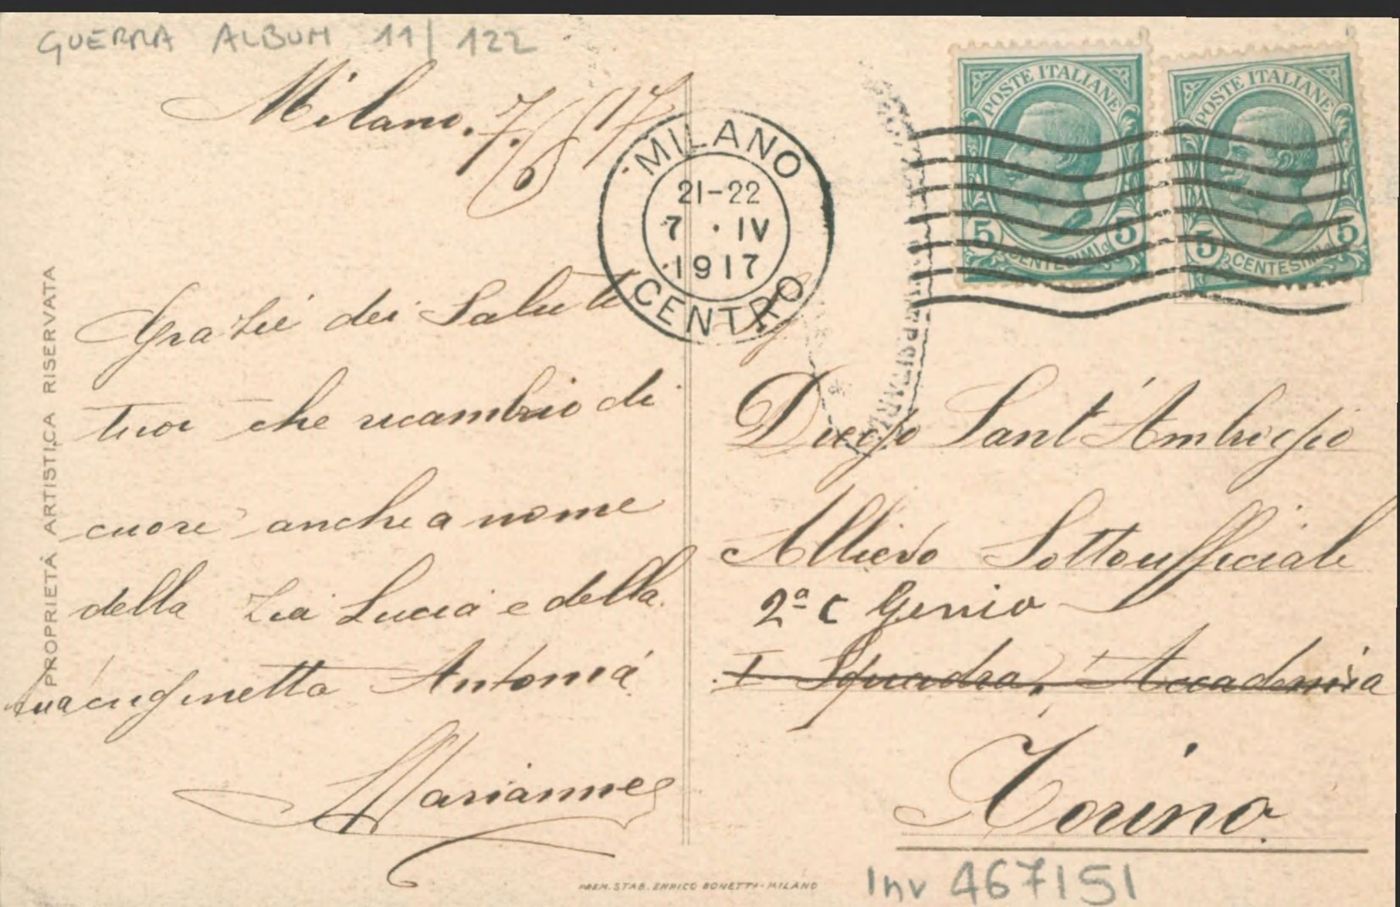 GUERRA ALBUM 11/122
Milano, 7/ /17
MILANO
21-22
7 · IV
1917
CENTRO
POSTE ITALIANE
5 CENTESIMI 5
POSTE ITALIANE
5 CENTESIMI 5
Grazie dei Saluti
tuoi che ricambio di
cuore anche a nome
della Zia Lucia e della
tua cuginetta Antonia
Marianne
Diego Sant'Ambrogio
Allievo Sottoufficiale
2ª C Genio
I Squadra, Accademia
Torino
PROPRIETÀ ARTISTICA RISERVATA
PREM. STAB. ENRICO BONETTI - MILANO
Inv 467151